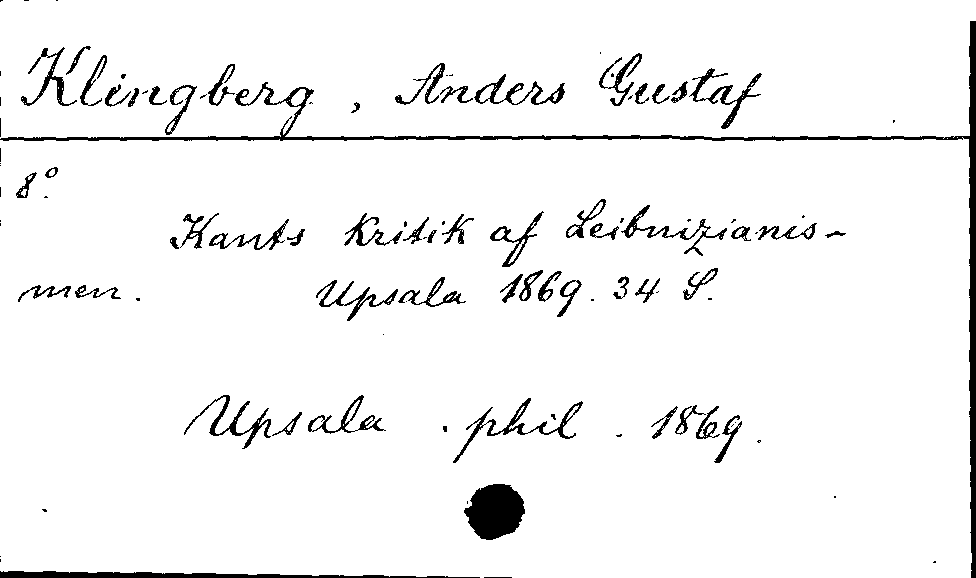 Klingberg, Anders Gustaf
8°.
Kants Kritik af Leibnizianis-
men. Upsala 1869. 34 S.
Upsala . phil . 1869.